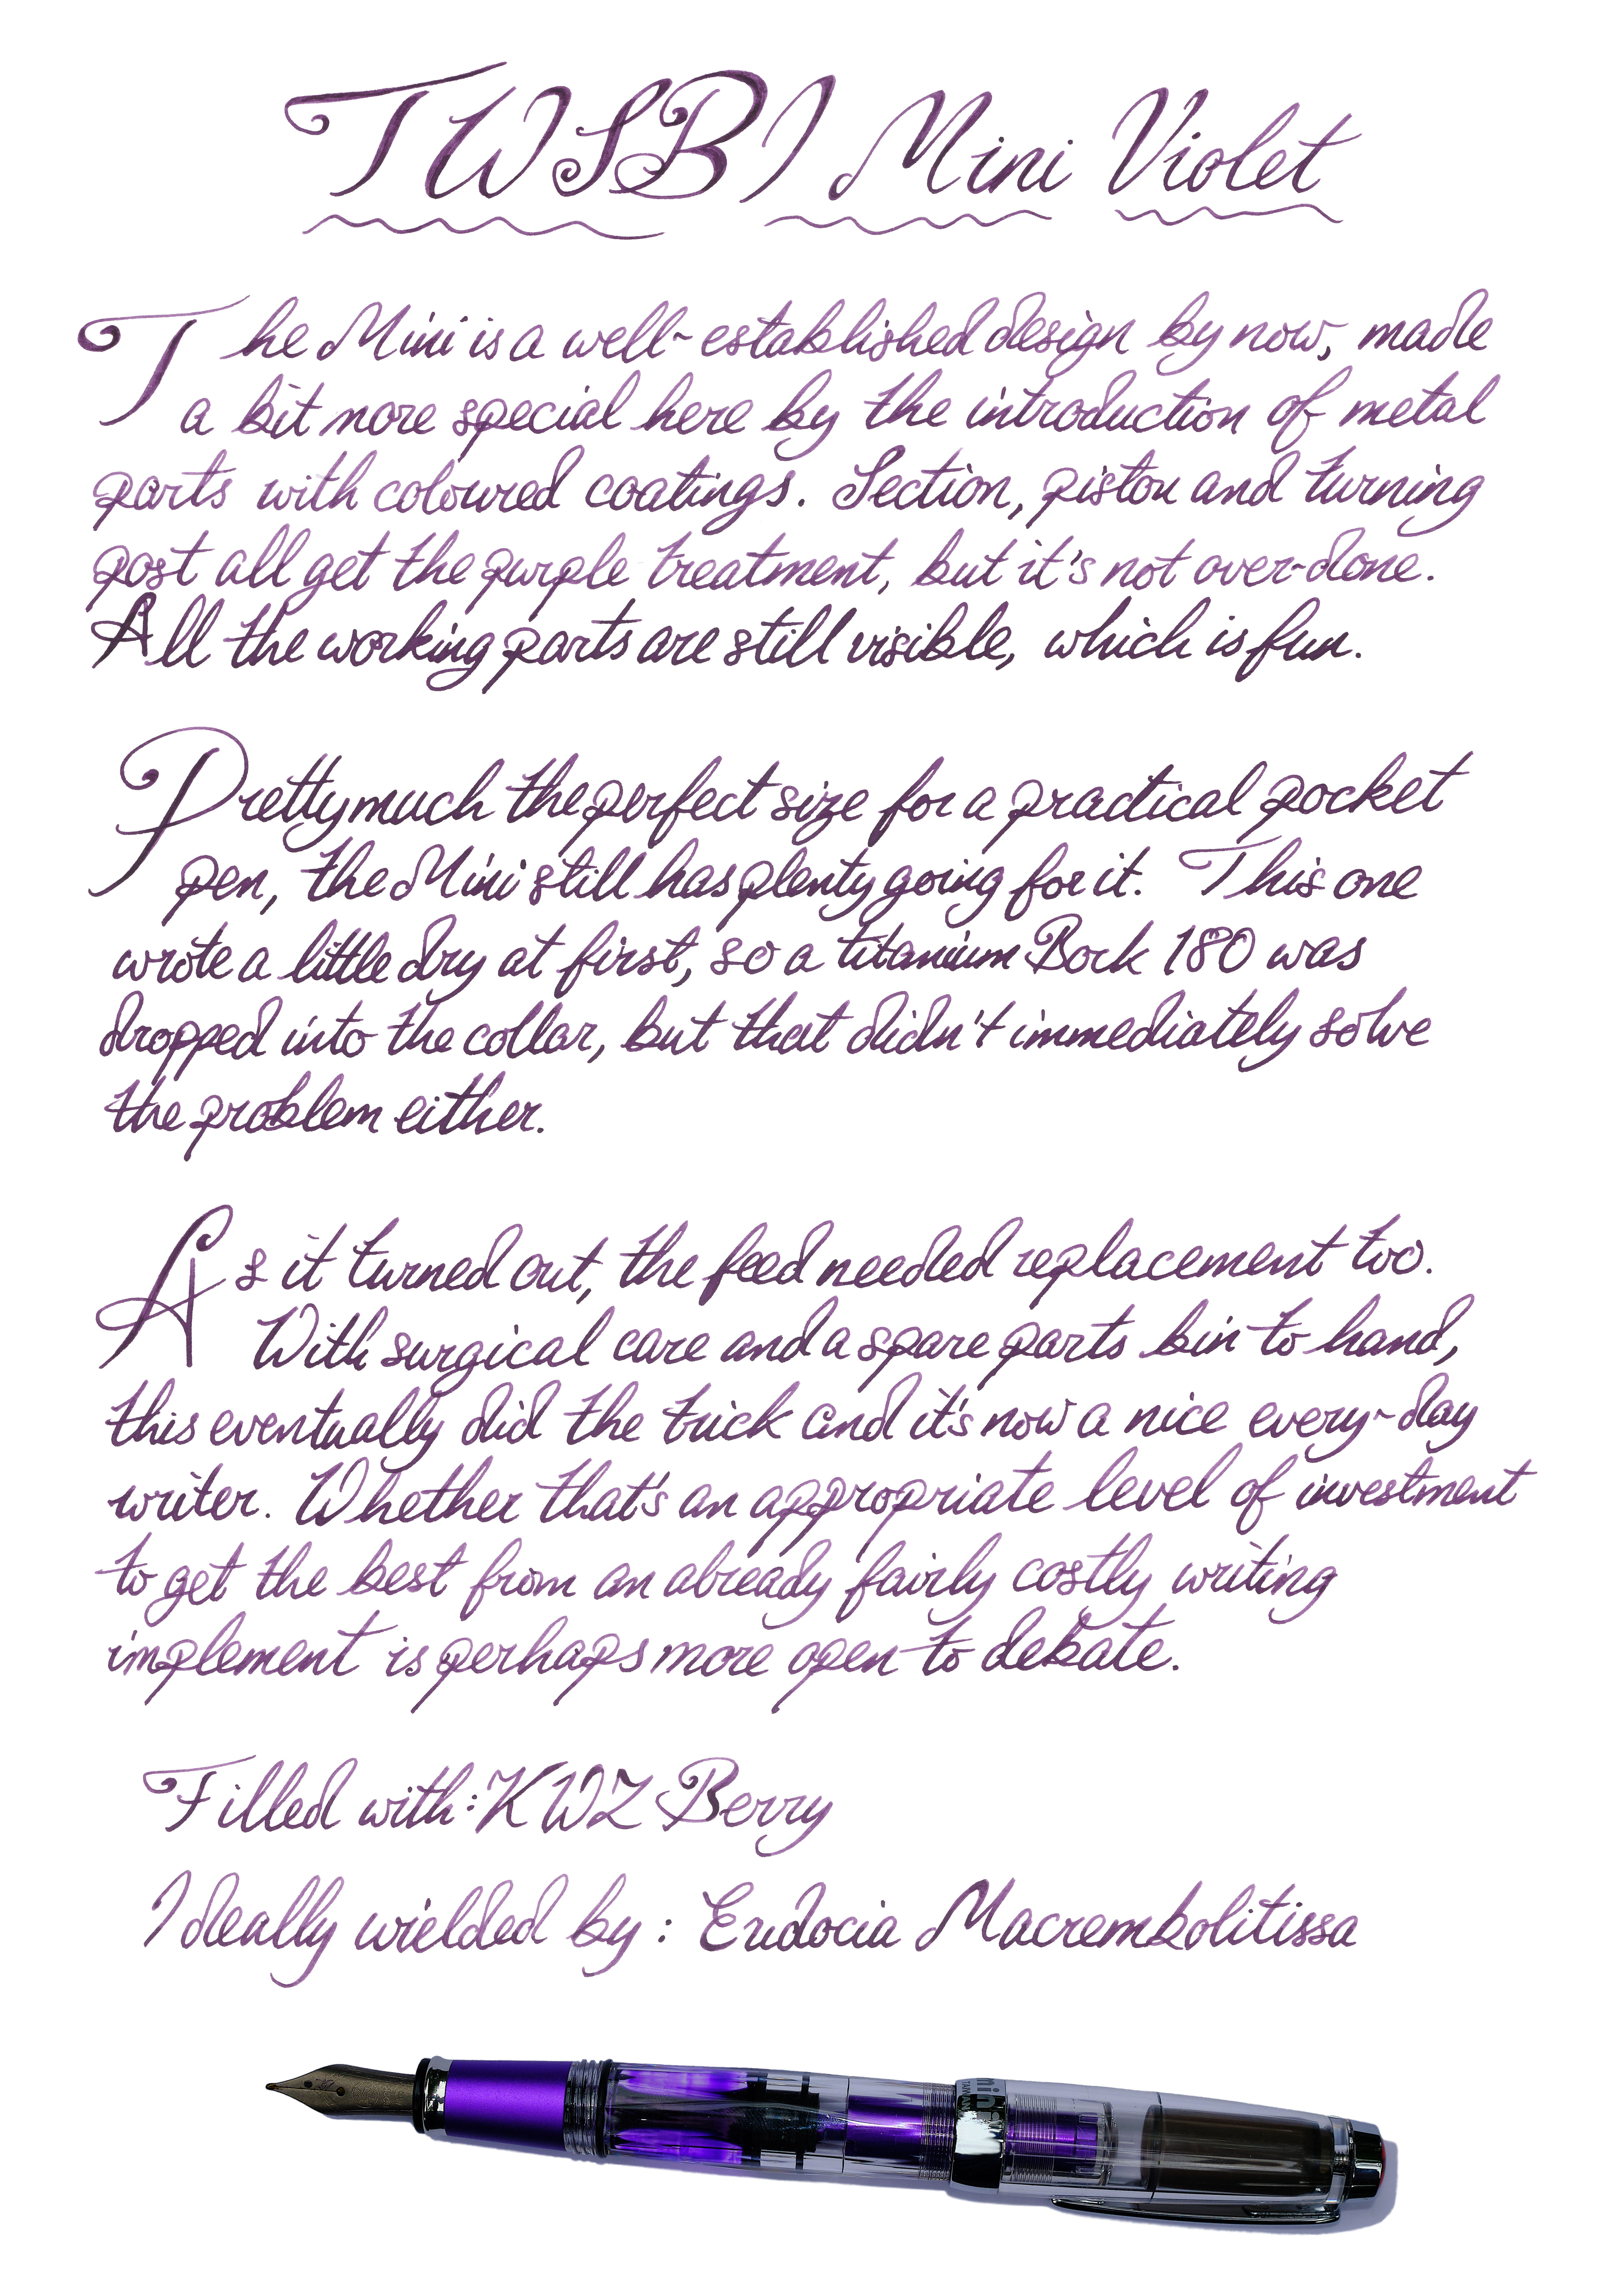 TWSBI Mini Violet
The Mini is a well-established design by now, made
a bit more special here by the introduction of metal
parts with coloured coatings. Section, piston and turning
post all get the purple treatment, but it's not over-done.
All the working parts are still visible, which is fun.
Pretty much the perfect size for a practical pocket
pen, the Mini still has plenty going for it. This one
wrote a little dry at first, so a titanium Bock 180 was
dropped into the collar, but that didn't immediately solve
the problem either.
As it turned out, the feed needed replacement too.
With surgical care and a spare parts bin to hand,
this eventually did the trick and it's now a nice every-day
writer. Whether that's an appropriate level of investment
to get the best from an already fairly costly writing
implement is perhaps more open to debate.
Filled with: KWZ Berry
Ideally wielded by: Eudocia Macrembolitissa